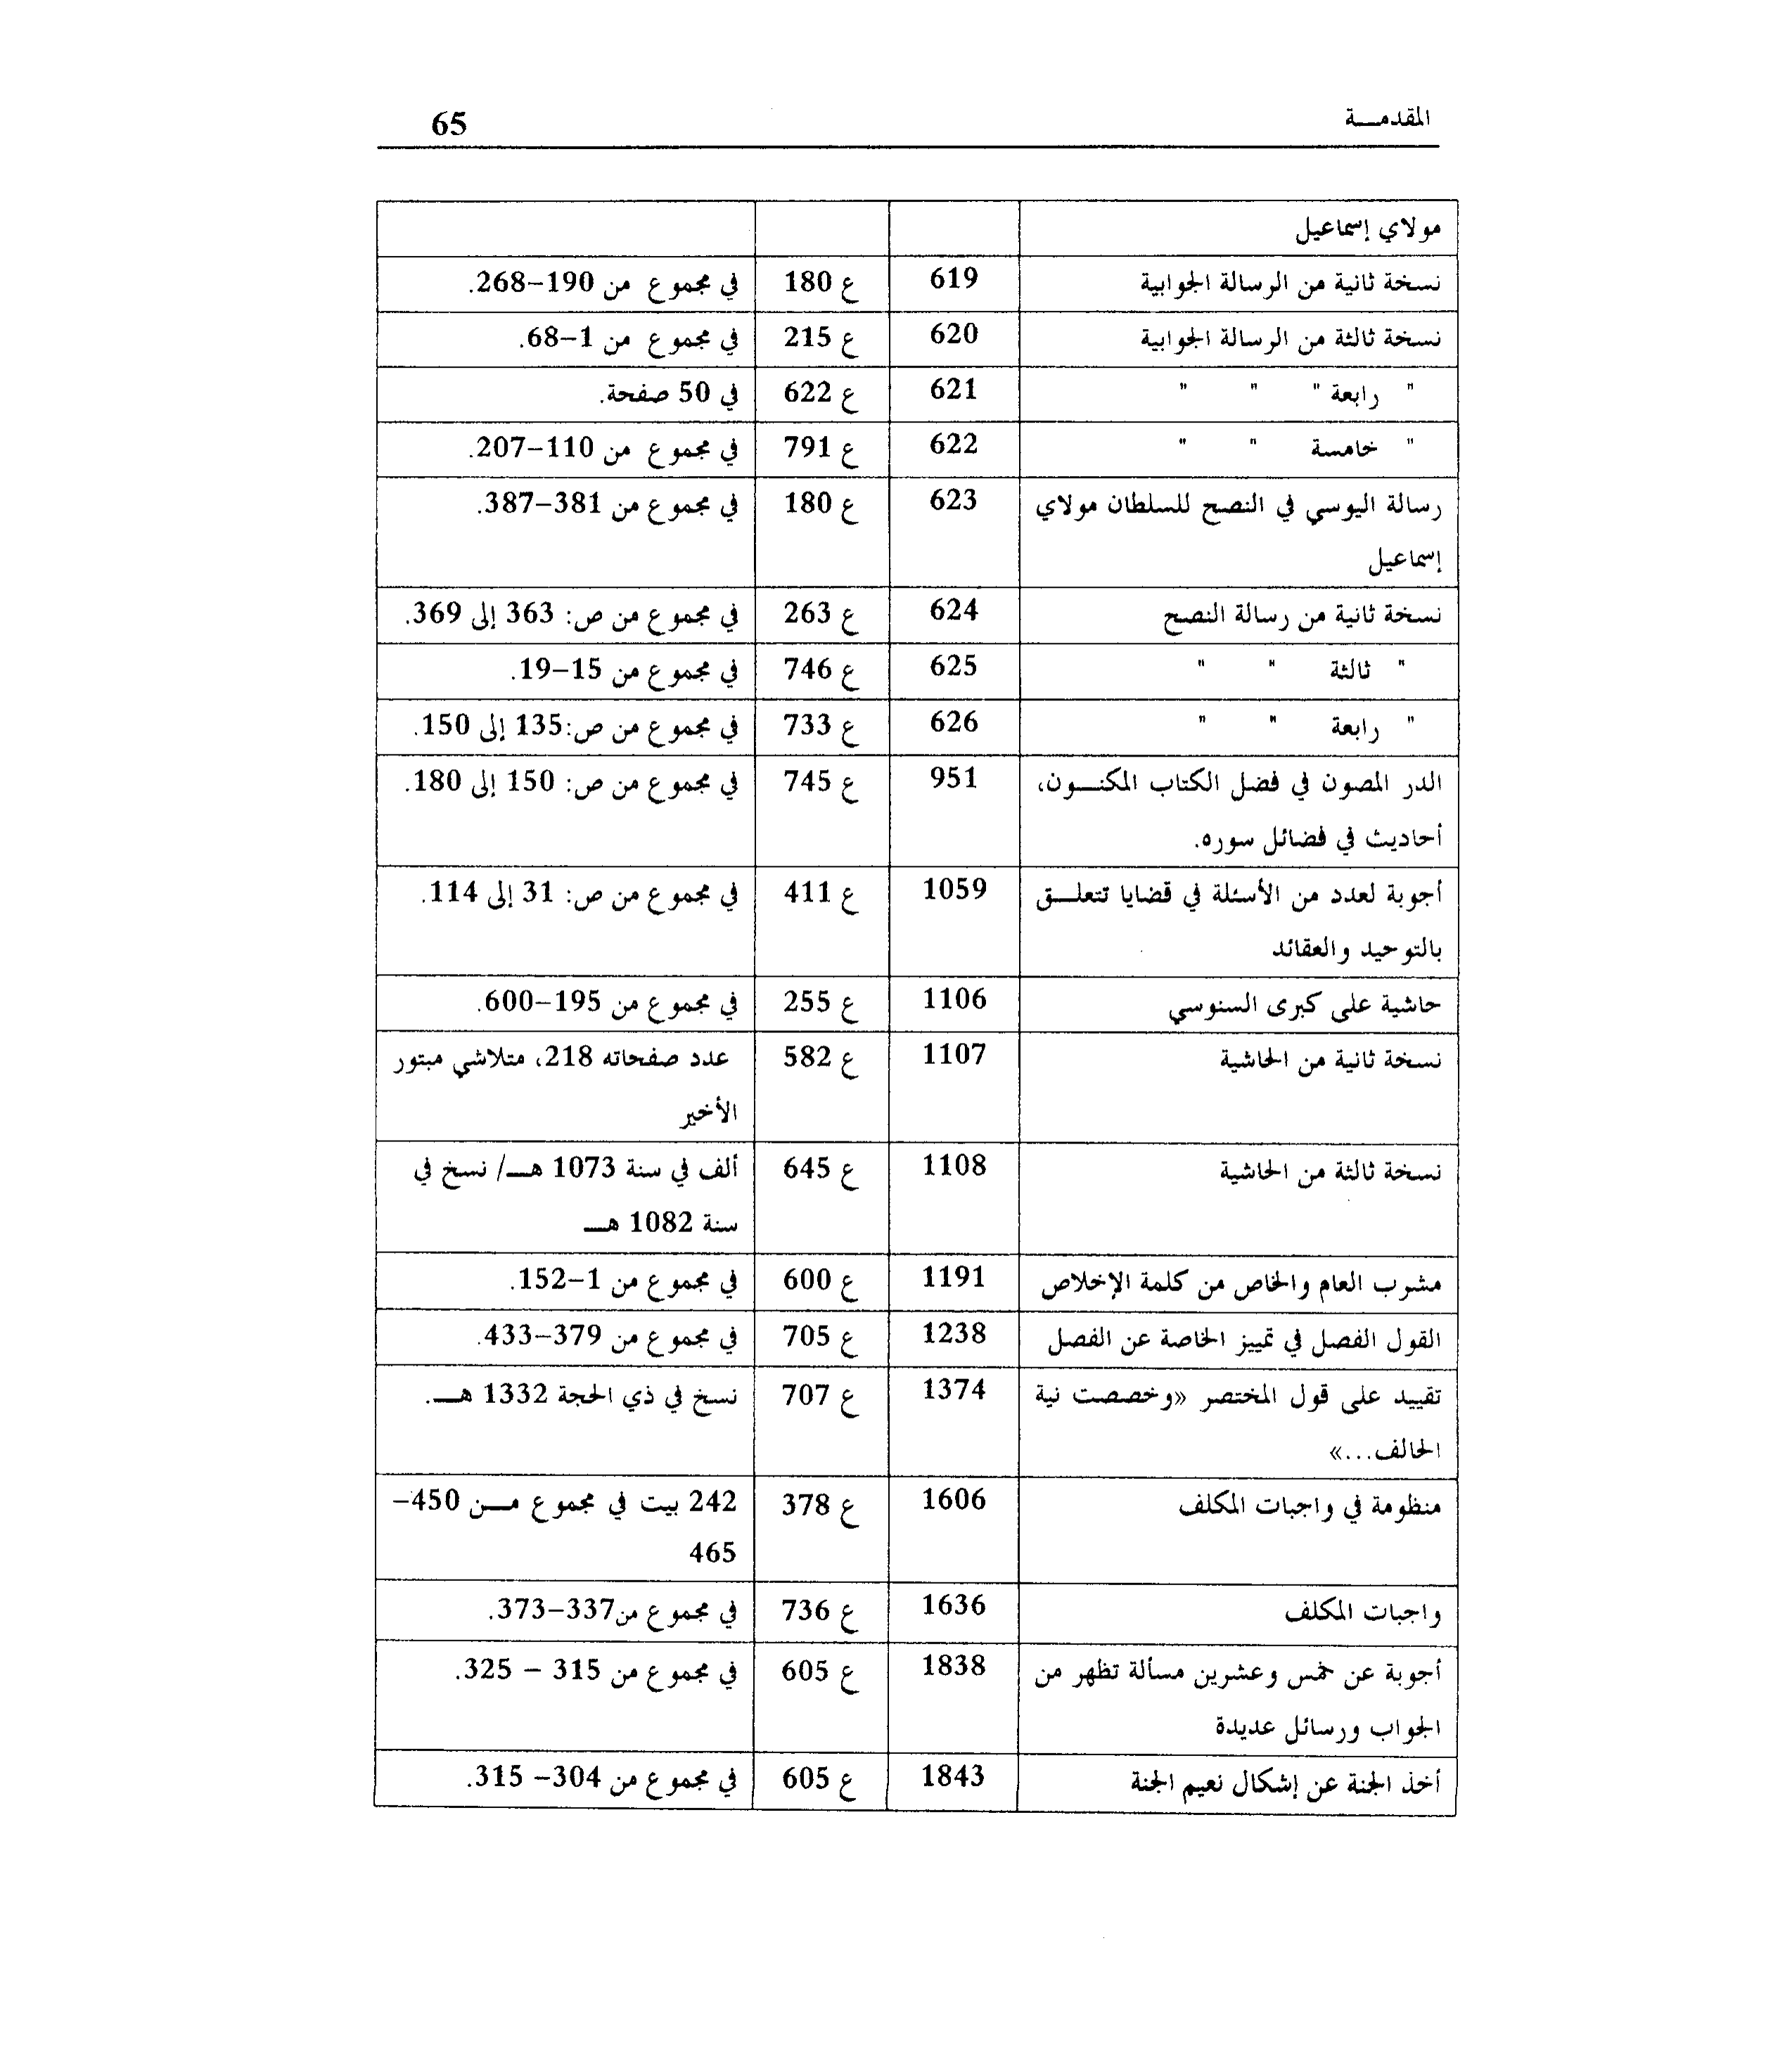 المقدمـــة 65
مولاي إسماعيل
نسخة ثانية من الرسالة الجوابية 619 ع 180 في مجموع من 190–268.
نسخة ثالثة من الرسالة الجوابية 620 ع 215 في مجموع من 1–68.
" رابعة " " " 621 ع 622 في 50 صفحة.
" خامسة " " 622 ع 791 في مجموع من 110–207.
رسالة اليوسي في النصح للسلطان مولاي 623 ع 180 في مجموع من 381–387.
إسماعيل
نسخة ثانية من رسالة النصح 624 ع 263 في مجموع من ص: 363 إلى 369.
" ثالثة " " 625 ع 746 في مجموع من 15–19.
" رابعة " " 626 ع 733 في مجموع من ص:135 إلى 150.
الدر المصون في فضل الكتاب المكنـــون، 951 ع 745 في مجموع من ص: 150 إلى 180.
أحاديث في فضائل سوره.
أجوبة لعدد من الأسئلة في قضايا تتعلـــق 1059 ع 411 في مجموع من ص: 31 إلى 114.
بالتوحيد والعقائد
حاشية على كبرى السنوسي 1106 ع 255 في مجموع من 195–600.
نسخة ثانية من الحاشية 1107 ع 582 عدد صفحاته 218، متلاشي مبتور
الأخير
نسخة ثالثة من الحاشية 1108 ع 645 ألف في سنة 1073 هـــ/ نسخ في
سنة 1082 هـــ
مشرب العام والخاص من كلمة الإخلاص 1191 ع 600 في مجموع من 1–152.
القول الفصل في تمييز الخاصة عن الفصل 1238 ع 705 في مجموع من 379–433.
تقييد على قول المختصر «وخصصت نية 1374 ع 707 نسخ في ذي الحجة 1332 هـــ.
الحالف...»
منظومة في واجبات المكلف 1606 ع 378 242 بيت في مجموع مـــن 450–
465
واجبات المكلف 1636 ع 736 في مجموع من337–373.
أجوبة عن خمس وعشرين مسألة تظهر من 1838 ع 605 في مجموع من 315 – 325.
الجواب ورسائل عديدة
أخذ الجنة عن إشكال نعيم الجنة 1843 ع 605 في مجموع من 304– 315.